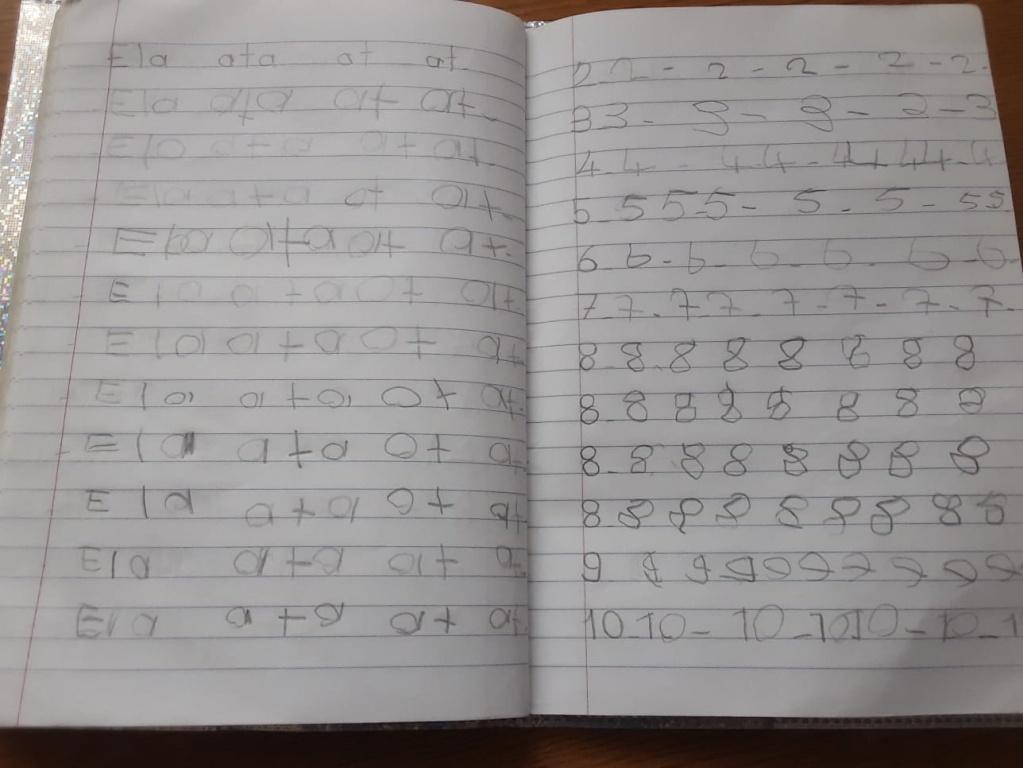 Ela ata at at
Ela ata at at
Ela ata at at
Ela ata at at
Ela ata at at
Ela ata at at
Ela ata at at
Ela ata at at
Ela ata at at
Ela ata at at
Ela ata at at
Ela ata at at
2 2 - 2 - 2 - 2 - 2 -
3 3 - 3 - 3 - 3 - 3
4 4 - 4 4 - 4 4 4 4 - 4
5 5 5 5 - 5 - 5 - 5 5
6 6 - 6 - 6 - 6 - 6 - 6
7 7 - 7 7 - 7 - 7 - 7 - 7
8 8 8 8 8 8 8 8
8 8 8 8 8 8 8 8
8 8 8 8 8 8 8 8
8 8 8 8 8 8 8 8 8
9 9 9 9 9 9 9 9 9 9
10 - 10 - 10 - 10 10 - 10 - 1